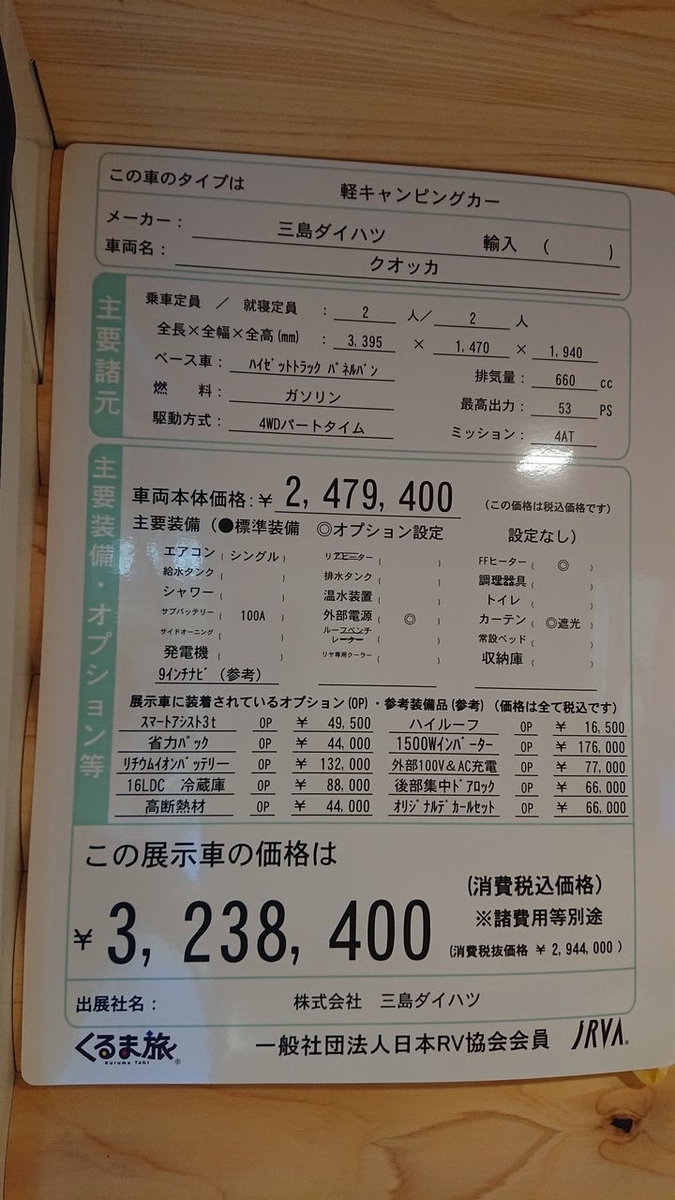 この車のタイプは 軽キャンピングカー
メーカー： 三島ダイハツ 輸入 （ ）
車両名： クオッカ
主要諸元
乗車定員 ／ 就寝定員 ： 2 人／ 2 人
全長×全幅×全高(mm) ： 3,395 × 1,470 × 1,940
ベース車： ﾊｲｾﾞｯﾄﾄﾗｯｸ ﾊﾟﾈﾙﾊﾞﾝ 排気量： 660 cc
燃 料： ガソリン 最高出力： 53 PS
駆動方式： 4WDパートタイム ミッション： 4AT
主要装備・オプション等
車両本体価格：¥ 2,479,400 （この価格は税込価格です）
主要装備（●標準装備 ◎オプション設定 設定なし）
エアコン（ シングル ） リアヒーター（ ） FFヒーター（ ◎ ）
給水タンク（ ） 排水タンク（ ） 調理器具（ ）
シャワー（ ） 温水装置（ ） トイレ（ ）
サブバッテリー（ 100A ） 外部電源（ ◎ ） カーテン（ ◎遮光 ）
サイドオーニング（ ） ルーフベンチレーター（ ） 常設ベッド（ ）
発電機（ ） リヤ専用クーラー（ ） 収納庫（ ）
9インチナビ（参考）
展示車に装着されているオプション(OP)・参考装備品(参考)（価格は全て税込です）
ｽﾏｰﾄｱｼｽﾄ3t OP ¥ 49,500 ハイルーフ OP ¥ 16,500
省力ﾊﾟｯｸ OP ¥ 44,000 1500Wｲﾝﾊﾞｰﾀｰ OP ¥ 176,000
ﾘﾁｳﾑｲｵﾝﾊﾞｯﾃﾘｰ OP ¥ 132,000 外部100V＆AC充電 OP ¥ 77,000
16LDC 冷蔵庫 OP ¥ 88,000 後部集中ﾄﾞｱﾛｯｸ OP ¥ 66,000
高断熱材 OP ¥ 44,000 ｵﾘｼﾞﾅﾙﾃﾞｶｰﾙｾｯﾄ OP ¥ 66,000
この展示車の価格は
¥ 3,238,400
（消費税込価格）
※諸費用等別途
（消費税抜価格 ¥ 2,944,000 ）
出展社名： 株式会社 三島ダイハツ
くるま旅®
Kuruma Tabi
一般社団法人日本RV協会会員 JRVA®